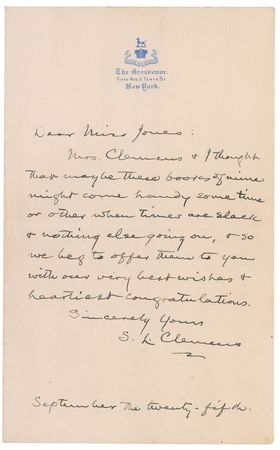 The Grosvenor.
Fifth Ave & Tenth St.
New York.
Dear Miss Jones:
Mrs. Clemens & I thought
that maybe these books of mine
might come handy some time
or other when times are slack
& nothing else going on, & so
we beg to offer them to you
with our very best wishes &
heartiest congratulations.
Sincerely Yours
S. L. Clemens
September the twenty-fifth.